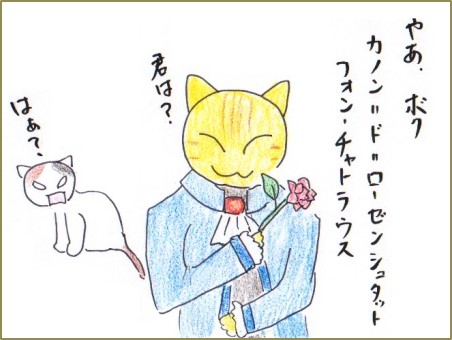 やあ、ボク
カノン=ド=ローゼンシュタット
フォン・チャトラウス
君は?
はあ?